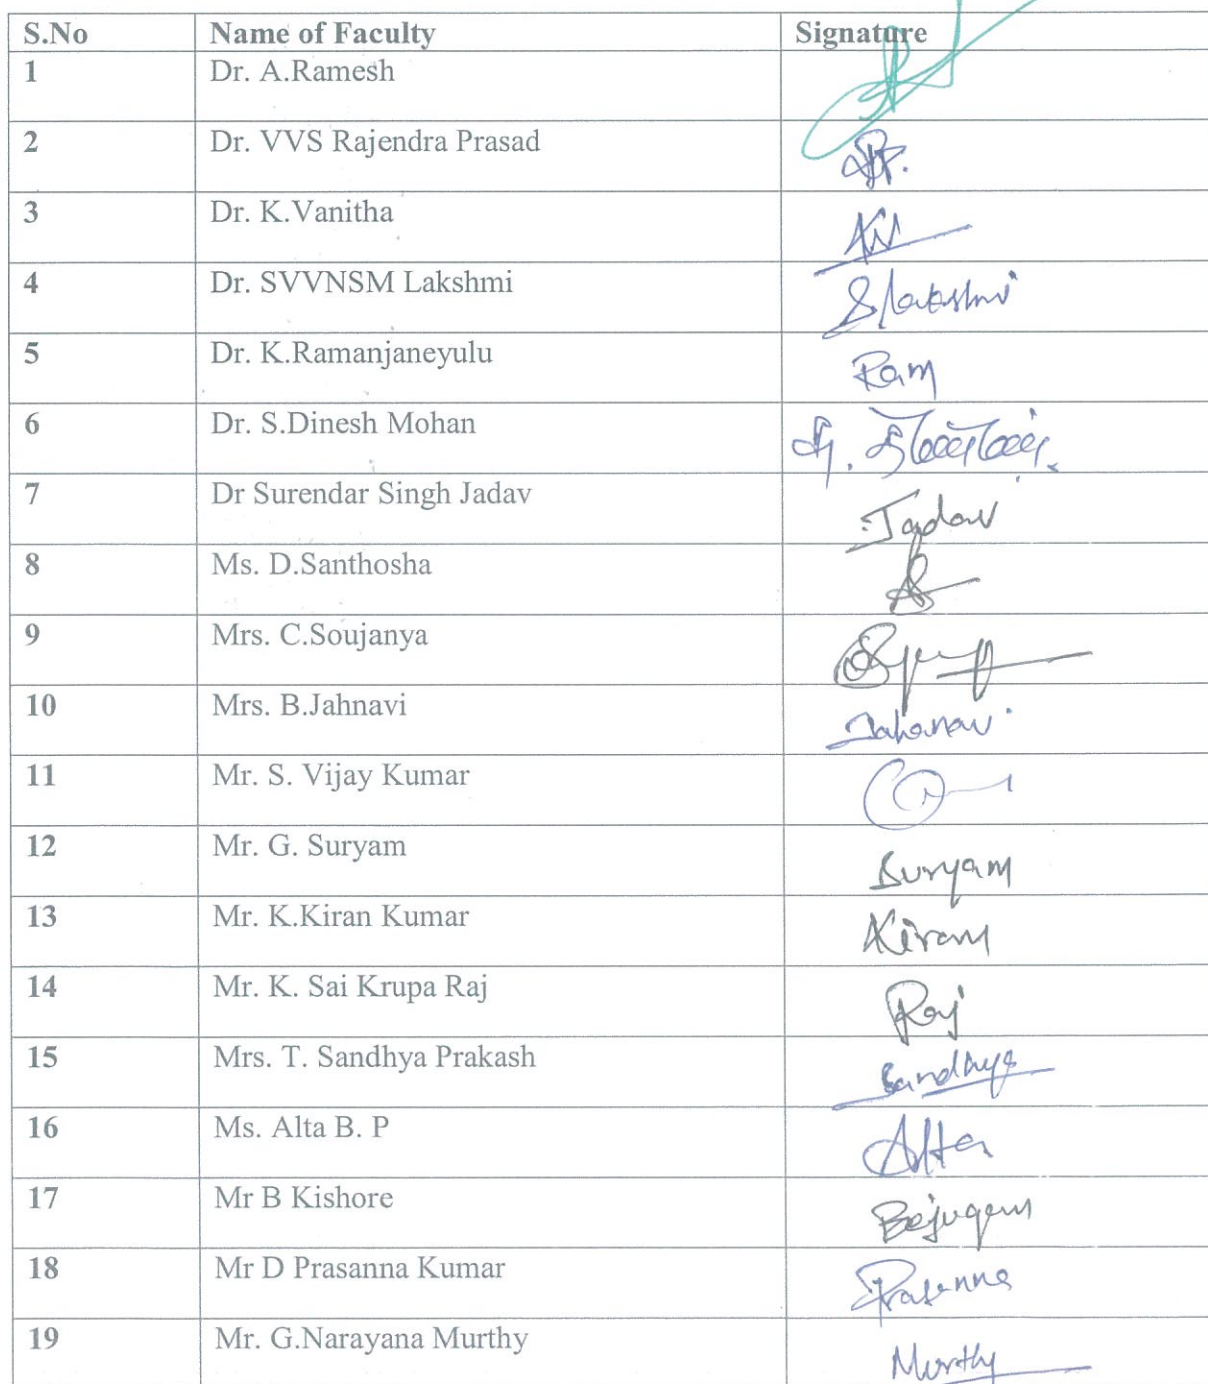 S.No Name of Faculty Signature
1 Dr. A.Ramesh
2 Dr. VVS Rajendra Prasad
3 Dr. K.Vanitha
4 Dr. SVVNSM Lakshmi Slakshmi
5 Dr. K.Ramanjaneyulu Ram
6 Dr. S.Dinesh Mohan
7 Dr Surendar Singh Jadav Jadav
8 Ms. D.Santhosha
9 Mrs. C.Soujanya
10 Mrs. B.Jahnavi Jahanavi
11 Mr. S. Vijay Kumar
12 Mr. G. Suryam Suryam
13 Mr. K.Kiran Kumar Kiran
14 Mr. K. Sai Krupa Raj Raj
15 Mrs. T. Sandhya Prakash Sandhya
16 Ms. Alta B. P Alta
17 Mr B Kishore Bejugam
18 Mr D Prasanna Kumar Prasanna
19 Mr. G.Narayana Murthy Murthy